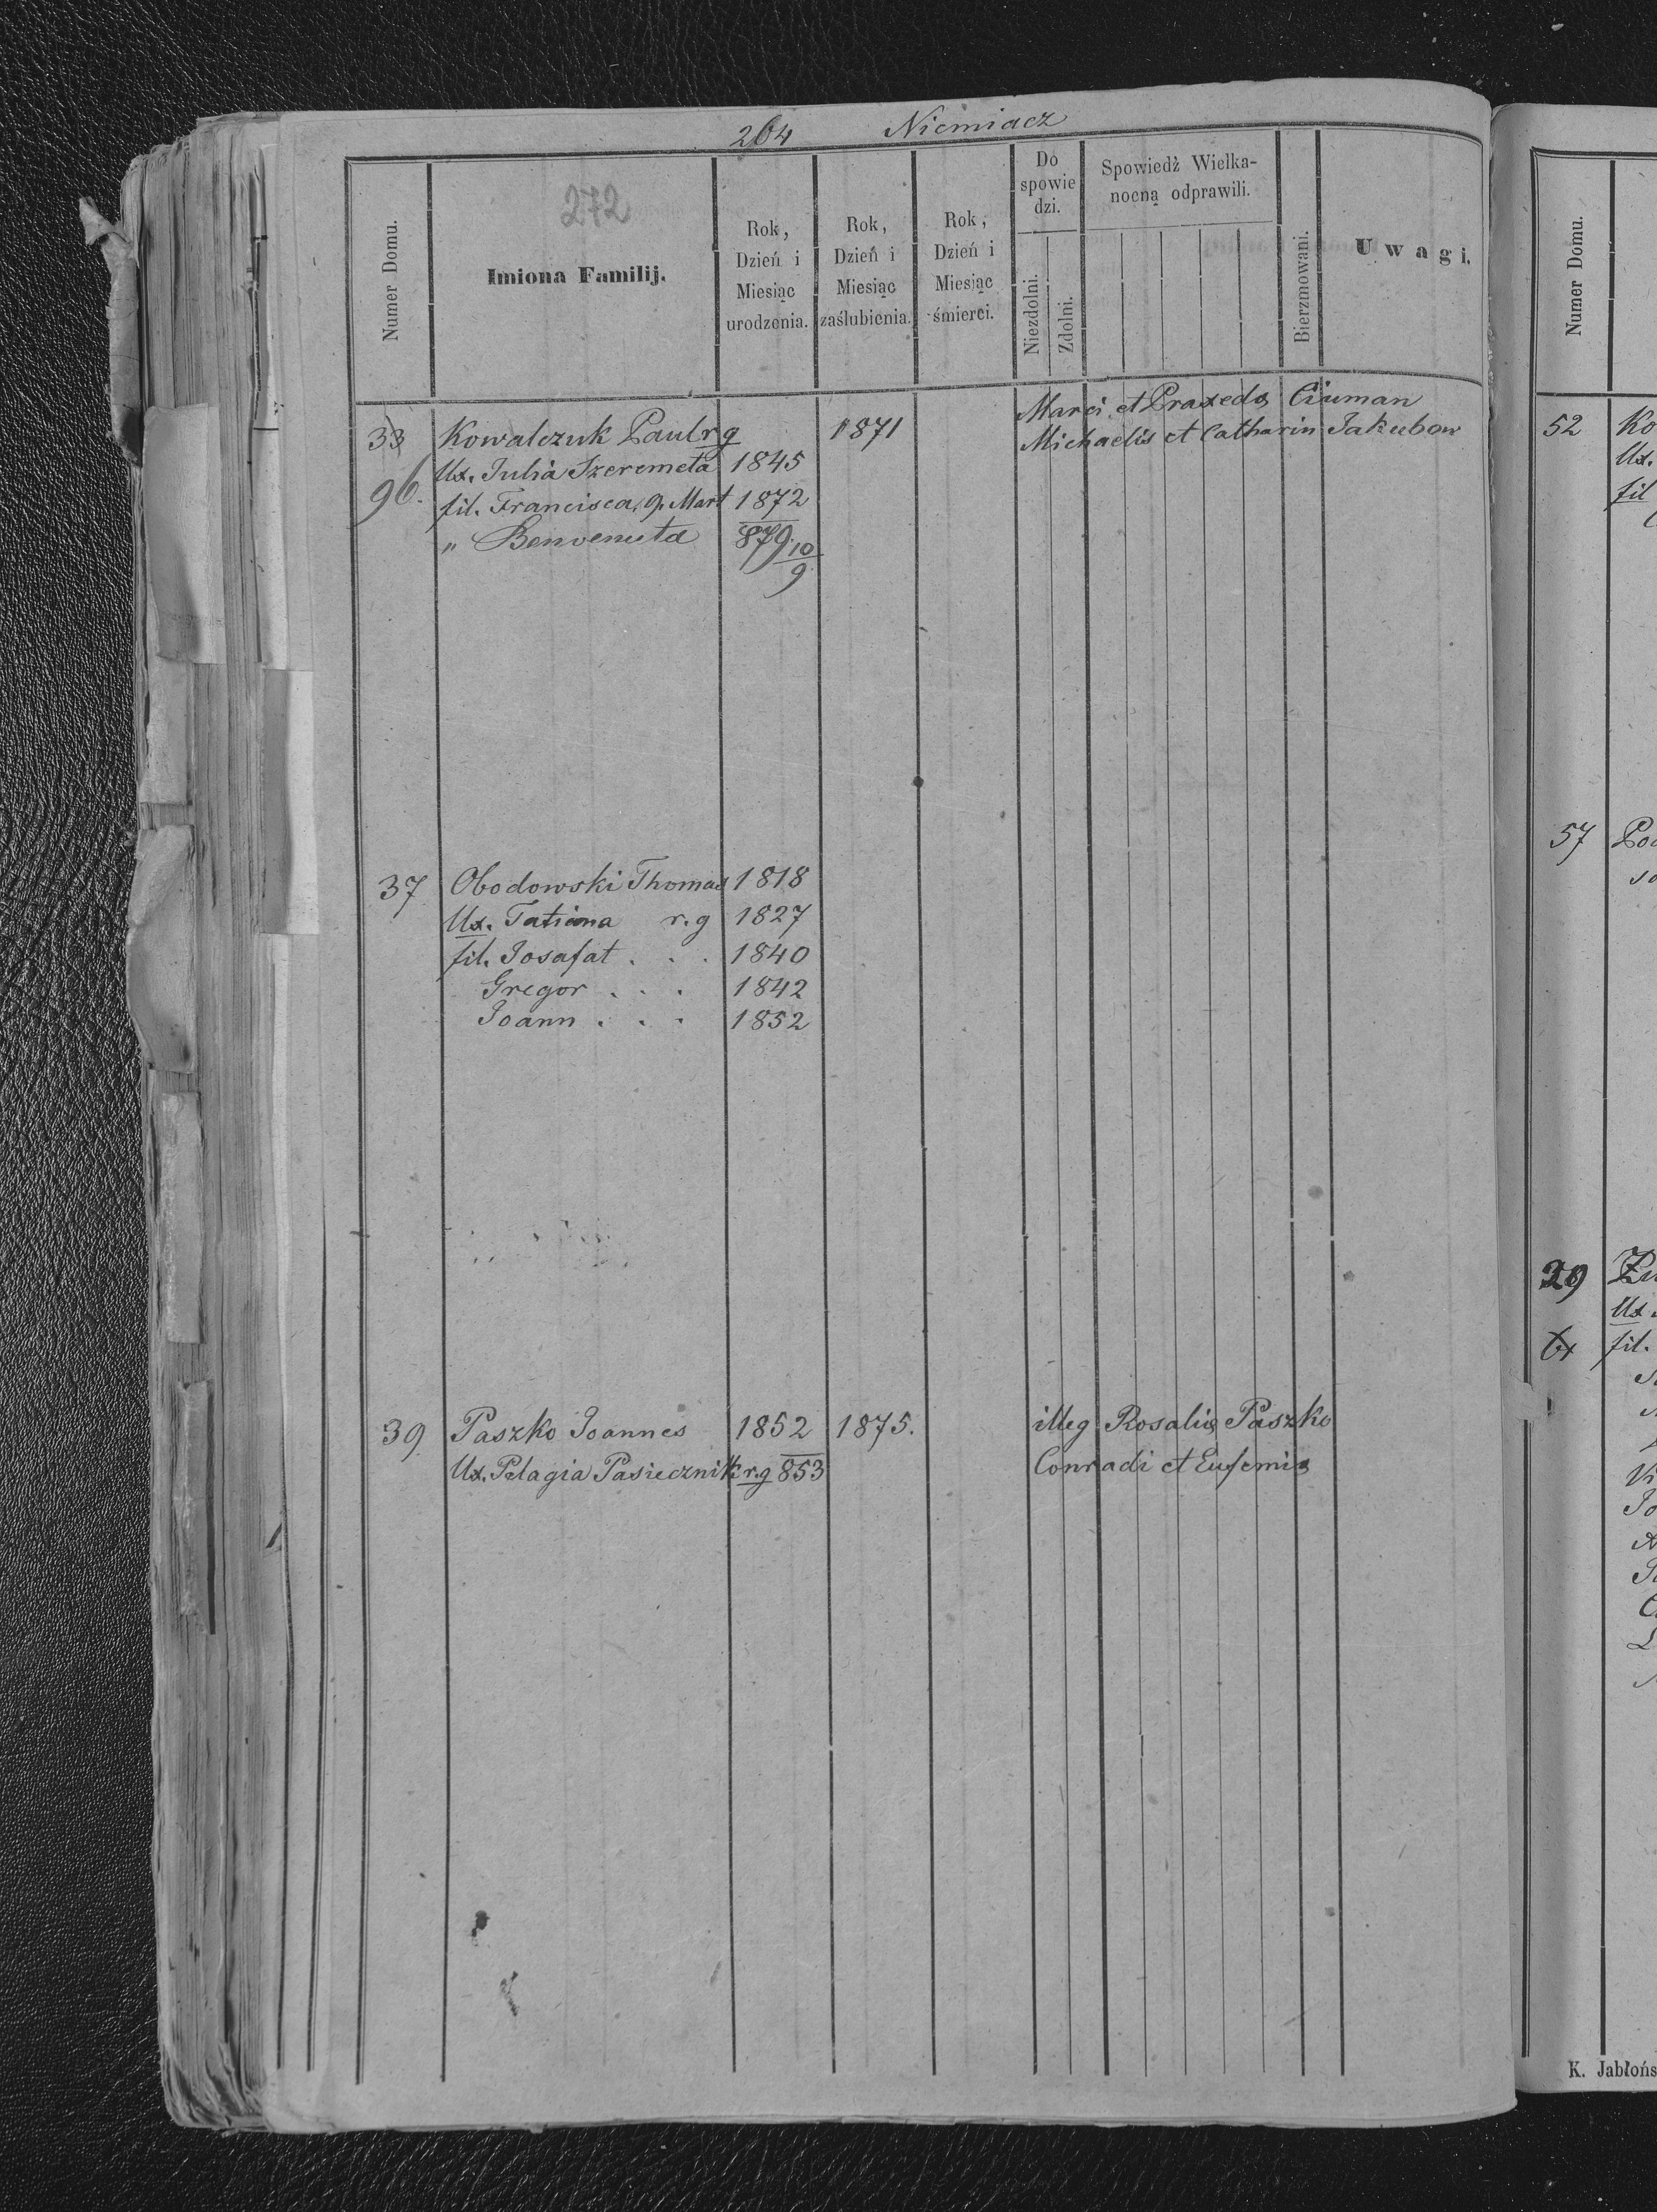 264 Niemiacz
272
Numer Domu.
Imiona Familij.
Rok, Dzień i Miesiąc urodzenia.
Rok, Dzień i Miesiąc zaślubienia.
Rok, Dzień i Miesiąc śmierci.
Do spowie dzi.
Niezdolni.
Zdolni.
Spowiedź Wielka-
nocną odprawili.
Bierzmowani.
Uwagi.
33 Kowalczuk Paul r g 1871 Marci et Praxeds Ciuman
Ux. Julia Szeremeta 1845 Michaelis et Catharin Jakubow
96. fil. Francisca, 9. Mart 1872
" Benvenuta 879 10/9
37 Obodowski Thomas 1818
Ux. Tatiana r. g 1827
fil. Josafat . . . 1840
Gregor . . . 1842
Joann . . . 1852
39 Paszko Joannes 1852 1875. illeg Rosalia Paszko
Ux. Pelagia Pasiecznik r. g 853 Conradi et Eufemia
Numer Domu.
52 Ko
Ux.
fil
57
29
Ux.
fil.
K. Jabłońs